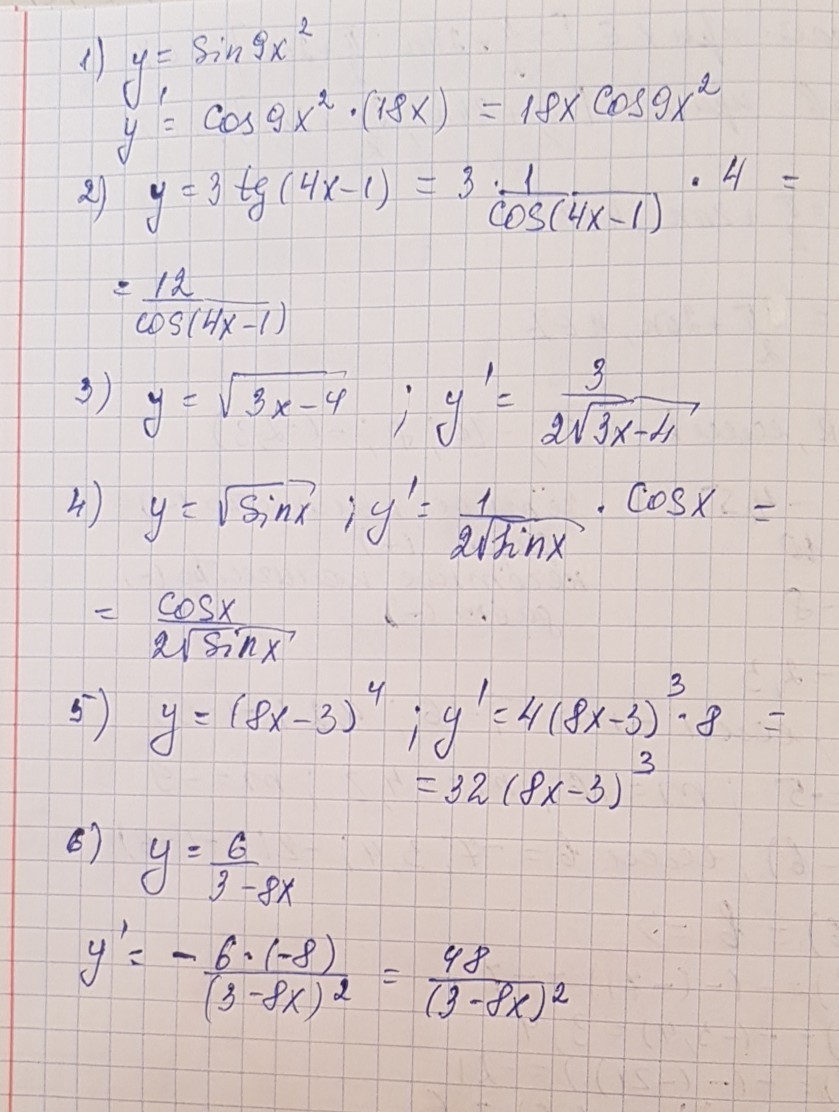 1) y = sin 9x²
y' = cos 9x² · (18x) = 18x cos 9x²
2) y = 3 tg (4x-1) = 3 · 1/cos(4x-1) · 4 =
= 12/cos(4x-1)
3) y = √(3x-4) ; y' = 3/(2√(3x-4))
4) y = √(sinx) ; y' = 1/(2√(sinx)) · cosx =
= cosx/(2√(sinx))
5) y = (8x-3)⁴ ; y' = 4(8x-3)³ · 8 =
= 32 (8x-3)³
6) y = 6/(3-8x)
y' = - 6·(-8)/(3-8x)² = 48/(3-8x)²